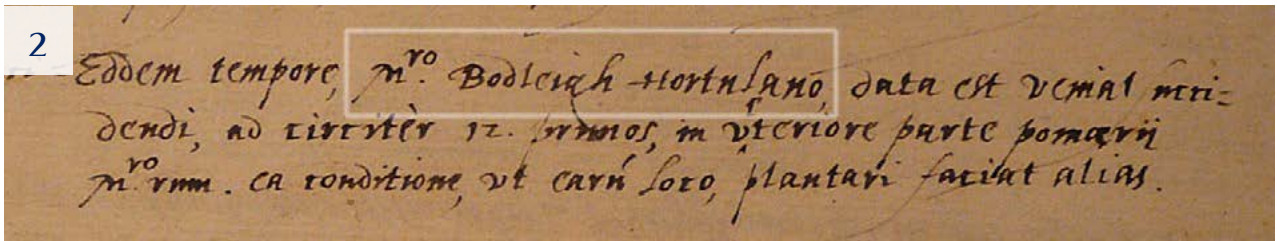 2
Eodem tempore, mro. Bodleigh Hortulano, data est venia succi-
dendi, ad circitèr 12. prunos, in vlteriore parte pomærii
mrorum. ea conditione, vt earū loco, plantari faciat alias.